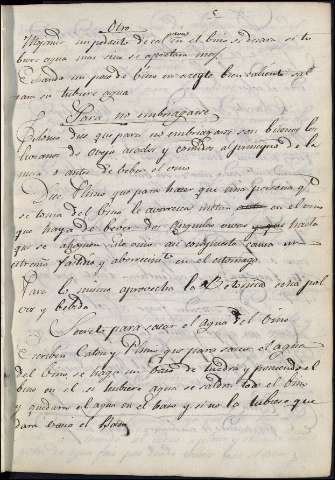 5
Otro
un pedazo de cal en el bino se desara si tu
biere agua
Echando un poco de bino en aceyte bien caliente sal
tara si tubiere agua
Para no embriagarse
dice que para no embriagarse son buenos los
livianos de oveja asados y comidos al principio de la
mesa o antes de beber el vino
Dice Plinio que para hacer que una persona q
se toma del bino le aborresca metan en el vino
que haya de beber dos anguilas envas y que hasta
que se ahoguen el vino asi compuesto causa un
extraño fastidio y aborrecimto en el estomago
Para lo mismo aprovecha la Betonica dda en pol
vos y bebida
Secreto para sacar el agua del Vino
Escriben Caton y Plinio que para sacar el agua
del vino, se haga un baso de iedra y poniendo el
bino en el si tubiere agua se saldra todo el bino
y quedara el agua en el baso y si no la tubiese que
dara vacio el Baso